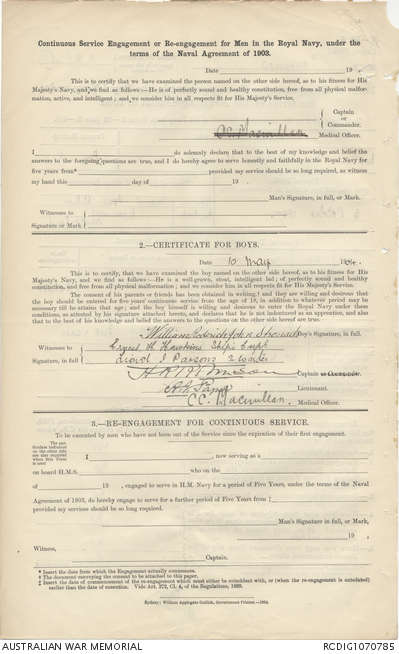 Continuous Service Engagement or Re-engagement for Men in the Royal Navy, under the
terms of the Naval Agreement of 1903.
Date 19 .
This is to certify that we have examined the person named on the other side hereof, as to his fitness for His
Majesty's Navy, and we find as follows :—He is of perfectly sound and healthy constitution, free from all physical malfor-
mation, active, and intelligent ; and we consider him in all respects fit for His Majesty's Service.
Captain
or
Commander.
Medical Officer.
I do solemnly declare that to the best of my knowledge and belief the
answers to the foregoing questions are true, and I do hereby agree to serve honestly and faithfully in the Royal Navy for
five years from* provided my service should be so long required, as witness
my hand this day of 19 .
Man's Signature, in full, or Mark.
Witnesses to
Signature or Mark
2.—CERTIFICATE FOR BOYS.
Date 10 May 1904.
This is to certify, that we have examined the boy named on the other side hereof, as to his fitness for His
Majesty's Navy, and we find as follows :—He is a well-grown, stout, intelligent lad ; of perfectly sound and healthy
constitution, and free from all physical malformation ; and we consider him in all respects fit for His Majesty's Service.
The consent of his parents or friends has been obtained in writing,† and they are willing and desirous that
the boy should be entered for five years' continuous service from the age of 18, in addition to whatever period may be
necessary till he attains that age ; and the boy himself is willing and desirous to enter the Royal Navy under these
conditions, as attested by his signature attached hereto, and declares that he is not indentured as an apprentice, and also
that to the best of his knowledge and belief the answers to the questions on the other side hereof are true.
William John Boy's Signature, in full.
Witnesses to
Signature, in full
Ernest H Hawkins Ships Corpl
Parsons Writer
Captain or Commander.
Lieutenant.
C.C. Macmillan. Medical Officer.
3.—RE-ENGAGEMENT FOR CONTINUOUS SERVICE.
To be executed by men who have not been out of the Service since the expiration of their first engagement.
The particulars indicated on the other side are also required when this Form is used
I , now serving as a
on board H.M.S. who on the
of 19 , engaged to serve in H.M. Navy for a period of Five Years, under the terms of the Naval
Agreement of 1903, do hereby engage to serve for a further period of Five Years from ‡
provided my services should be so long required.
Man's Signature in full, or Mark,
19 .
Witness,
Captain.
* Insert the date from which the Engagement actually commences.
† The document conveying the consent to be attached to this paper.
‡ Insert the date of commencement of re-engagement which must either be coincident with, or (when the re-engagement is antedated)
earlier than the date of execution. Vide Art. 372, Cl. 4, of the Regulations, 1899.
Sydney: William Applegate Gullick, Government Printer.—1904.
AUSTRALIAN WAR MEMORIAL
RCDIG1070785